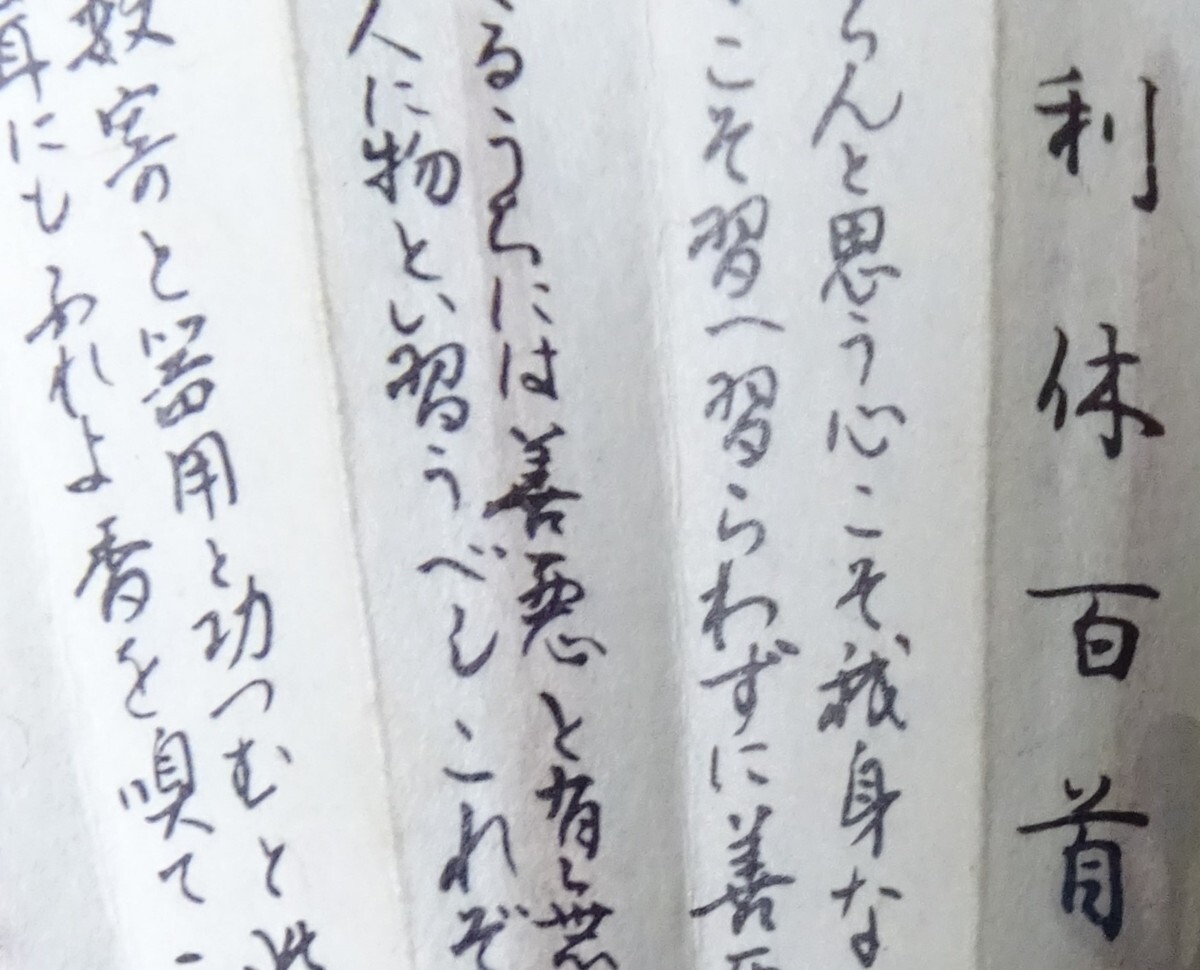 利休百首
らんと思う心こそ我身な
こそ習へ習らわずに善
るうちには善悪と有無
人に物とい習うべしこれぞ
数寄のと器用と功つむと
耳にもふれよ香を嗅て